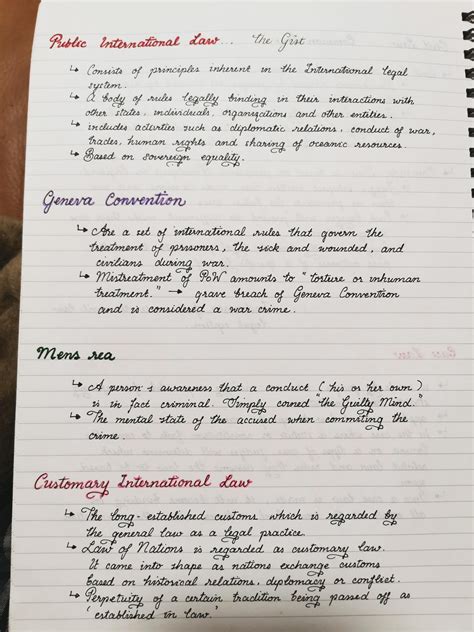 Public International Law... the Gist
↳ Consists of principles inherent in the International legal
system.
↳ A body of rules legally binding in their interactions with
other states, individuals, organizations and other entities.
↳ includes activities such as diplomatic relations, conduct of war,
trades, human rights and sharing of oceanic resources.
↳ Based on sovereign equality.
Geneva Convention
↳ Are a set of international rules that govern the
treatment of prisoners, the sick and wounded, and
civilians during war.
↳ Mistreatment of PoW amounts to "torture or inhuman
treatment." → grave breach of Geneva Convention
and is considered a war crime.
Mens rea
↳ A person's awareness that a conduct (his or her own)
is in fact criminal. Simply corned "the Guilty Mind."
↳ The mental state of the accused when commiting the
crime.
Customary International Law
↳ The long-established customs which is regarded by
the general law as a legal practice.
↳ Law of Nations is regarded as customary law.
It came into shape as nations exchange customs
based on historical relations, diplomacy or conflict.
↳ Perpetuity of a certain tradition being passed off as
'established in law.'